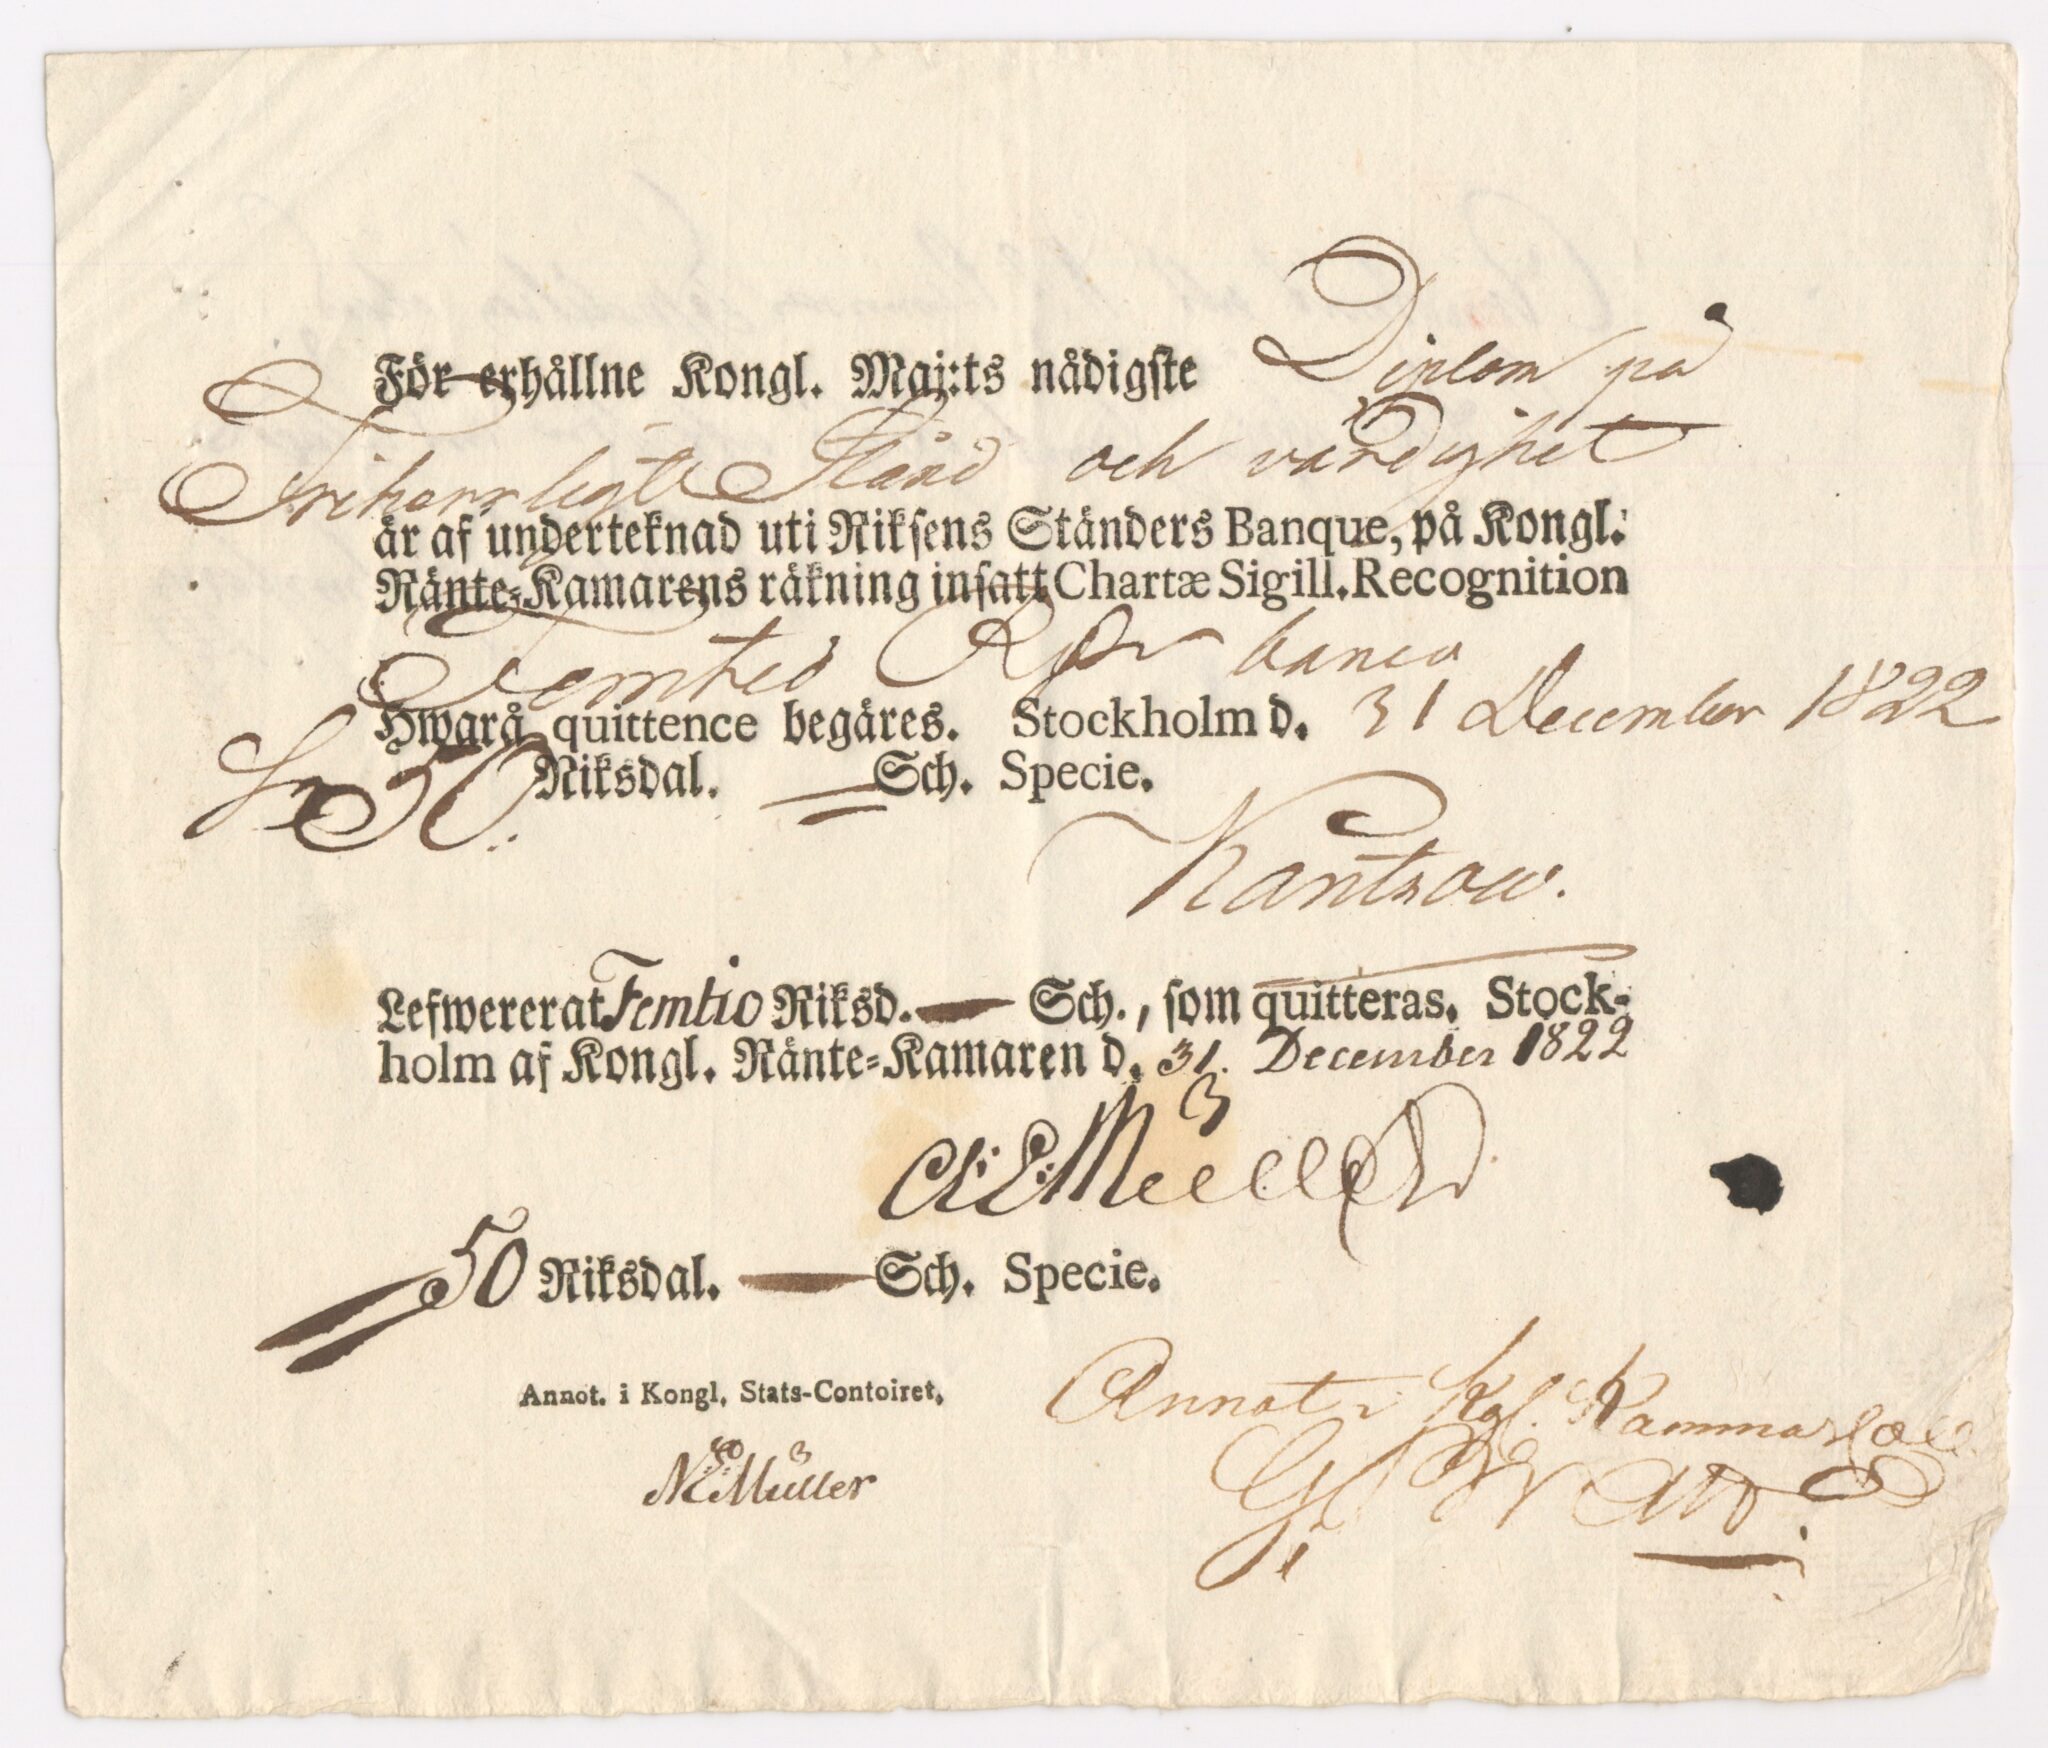 För erhållne Kongl. Maj:ts nådigste Diplom på
Friherrligt Stånd och värdighet
är af underteknad uti Riksens Ständers Banque, på Kongl.
Ränte-Kamarens räkning insatt Chartæ Sigill. Recognition
Femtio Rdr banco
Hwarå quittence begäres. Stockholm d. 31 December 1822
50 Riksdal. Sch. Specie.
Kantzow.
Lefwererat Femtio Riksd. — Sch., som quitteras. Stock-
holm af Kongl. Ränte-Kamaren d. 31. December 1822
Müller
50 Riksdal. — Sch. Specie.
Annot. i Kongl. Stats-Contoiret.
Müller
Annot i Kgl. Kammar